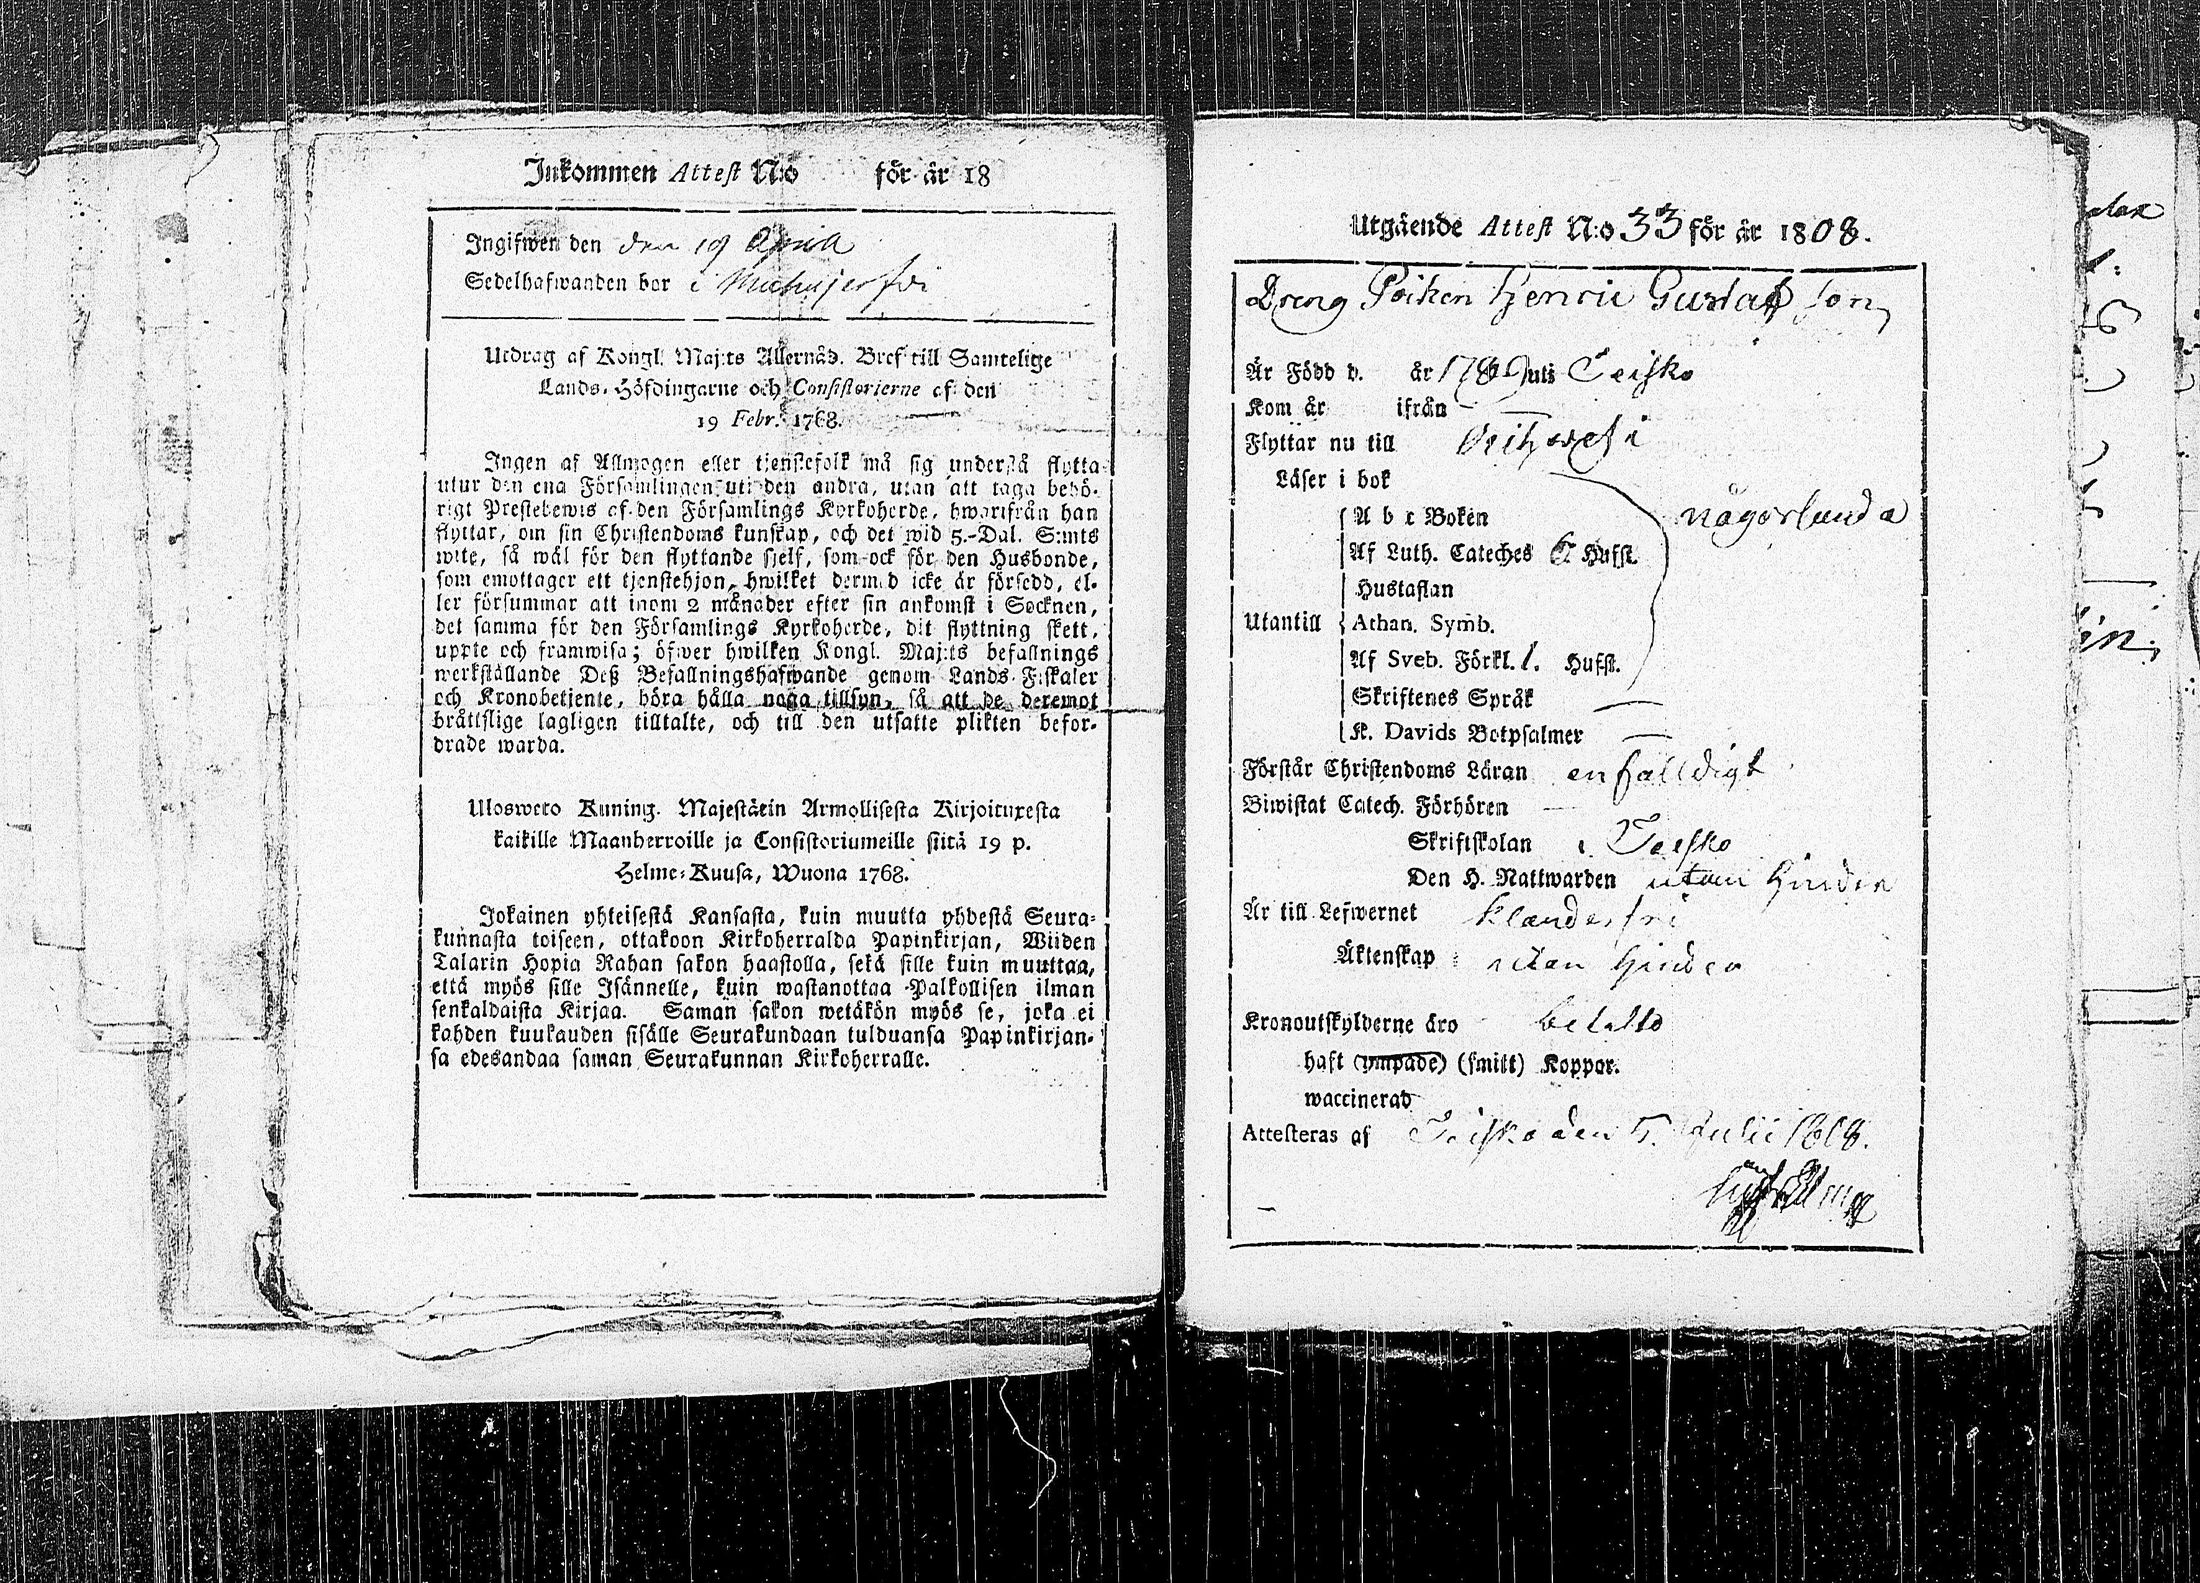 Inkommen Attest N:o för år 18
Ingifwen den den 19 Aprill
Sedelhafwanden bor i
Utdrag af Kongl. Maj:ts Allernåd. Bref till Samtelige
Lands-Höfdingarne och Consistorierne af den
19 Febr. 1768.
Ingen af Allmogen eller tjenstefolk må sig understå flytta
utur den ena Församlingen uti den andra, utan att taga behö-
rigt Prestebewis af den Församlings Kyrkoherde, hwarifrån han
flyttar, om sin Christendoms kunskap, och det wid 5.-Dal. S:mts
wite, så wäl för den flyttande sjelf, som ock för den Husbonde,
som emottager ett tjenstehjon, hwilket dermed icke är försedd, el-
ler försummar att inom 2 månader efter sin ankomst i Socknen,
det samma för den Församlings Kyrkoherde, dit flyttning skett,
uppte och framwisa; öfwer hwilken Kongl. Maj:ts befallnings
werkställande Deß Befallningshafwande genom Lands-Fiskaler
och Kronobetjente, böra hålla noga tillsyn, så att de deremot
bråttslige lagligen tilltalte, och till den utsatte plikten befor-
drade warda.
Ulosweto Kuning. Majestätin Armollisesta Kirjoituxesta
kaikille Maanherroille ja Consistoriumeille siitä 19 p.
Helme-Kuusa, Wuona 1768.
Jokainen yhteisestä Kansasta, kuin muutta yhdestä Seura-
kunnasta toiseen, ottakoon Kirkoherralda Papinkirjan, Wiiden
Talarin Hopia Rahan sakon haastolla, sekä sille kuin muuttaa,
että myös sille Isännelle, kuin wastanottaa Palkollisen ilman
senkaldaista Kirjaa. Saman sakon wetäkön myös se, joka ei
kahden kuukauden sisälle Seurakundaan tulduansa Papinkirjan-
sa edesandaa saman Seurakunnan Kirkoherralle.
Utgående Attest N:o 33 för år 1808.
Dreng Poiken Henric Gustafson
Är Född d. år Juli Teisko
Kom år ifrån —
Flyttar nu till Orihvesi
Läser i bok
A b c Boken någorlunda
Af Luth. Cateches 6 Hufst.
Hustaflan
Utantill Athan. Symb.
Af Sveb. Förkl. 1. Hufst.
Skriftenes Språk —
K. Davids Botpsalmer —
Förstår Christendoms Läran enfalldigt
Biwistat Catech. Förhören —
Skriftskolan i Teisko
Den H. Nattwarden utan hinder
Är till Lefwernet klanderfri
Äktenskap utan hinder
Kronoutskylderne äro betalte
haft (ympade) (smitt) Koppor.
waccinerad
Attesteras af Teisko den 5. Julii 1808.